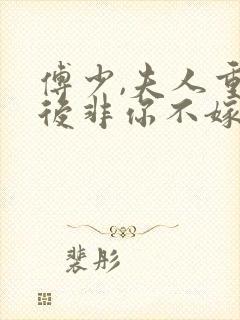 傅少,夫人重
後非你不嫁
裴彤